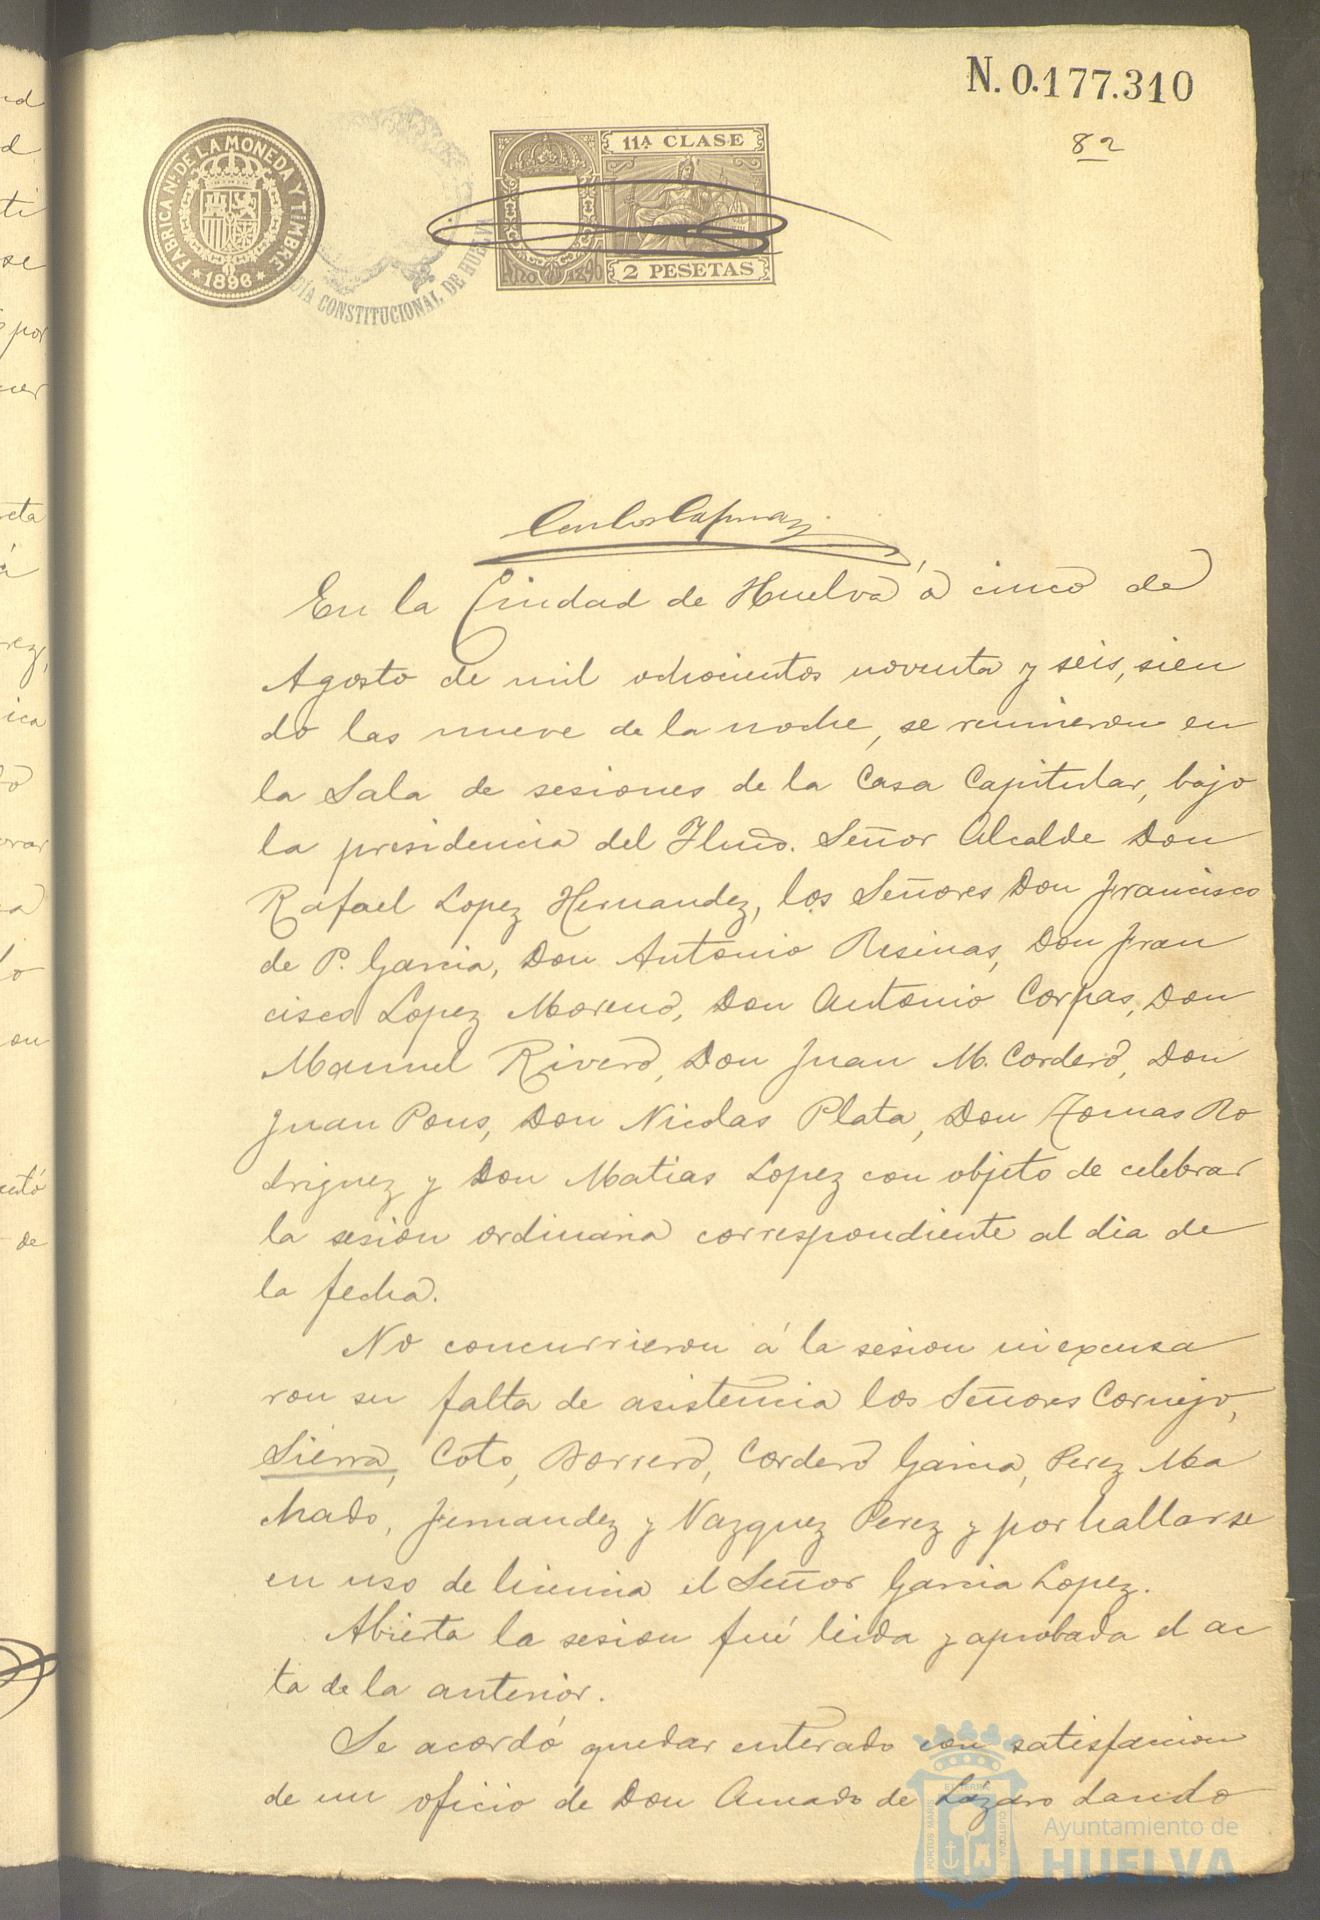 N. 0.177.310
82
FABRICA Nal DE LA MONEDA Y TIMBRE
* 1896 *
11ª CLASE
2 PESETAS
AÑO 1896
DÍA CONSTITUCIONAL DE HUELVA
En la Ciudad de Huelva á cinco de
Agosto de mil ochocientos noventa y seis, sien
do las nueve de la noche, se reunieron en
la Sala de sesiones de la Casa Capitular, bajo
la presidencia del Ilmo. Señor Alcalde Don
Rafael Lopez Hernandez, los Señores Don Francisco
de P. Garcia, Don Antonio Resinas, Don Fran
cisco Lopez Moreno, Don Antonio Corpas, Don
Manuel Rivero, Don Juan M. Cordero, Don
Juan Pons, Don Nicolas Plata, Don Tomas Ro
driguez y Don Matias Lopez con objeto de celebrar
la sesion ordinaria correspondiente al dia de
la fecha.
No concurrieron á la sesion ni excusa
ron su falta de asistencia los Señores Cornejo,
Sierra, Coto, Borrero, Cordero Garcia, Perez Ma
chado, Fernandez y Vazquez Perez y por hallarse
en uso de licencia el Señor Garcia Lopez.
Abierta la sesion fué leida y aprobada el ac
ta de la anterior.
Se acordó quedar enterado con satisfaccion
de un oficio de Don Amado de Lázaro dando
PORTUS MARIS ET TERRAE CUSTODIA
Ayuntamiento de
HUELVA